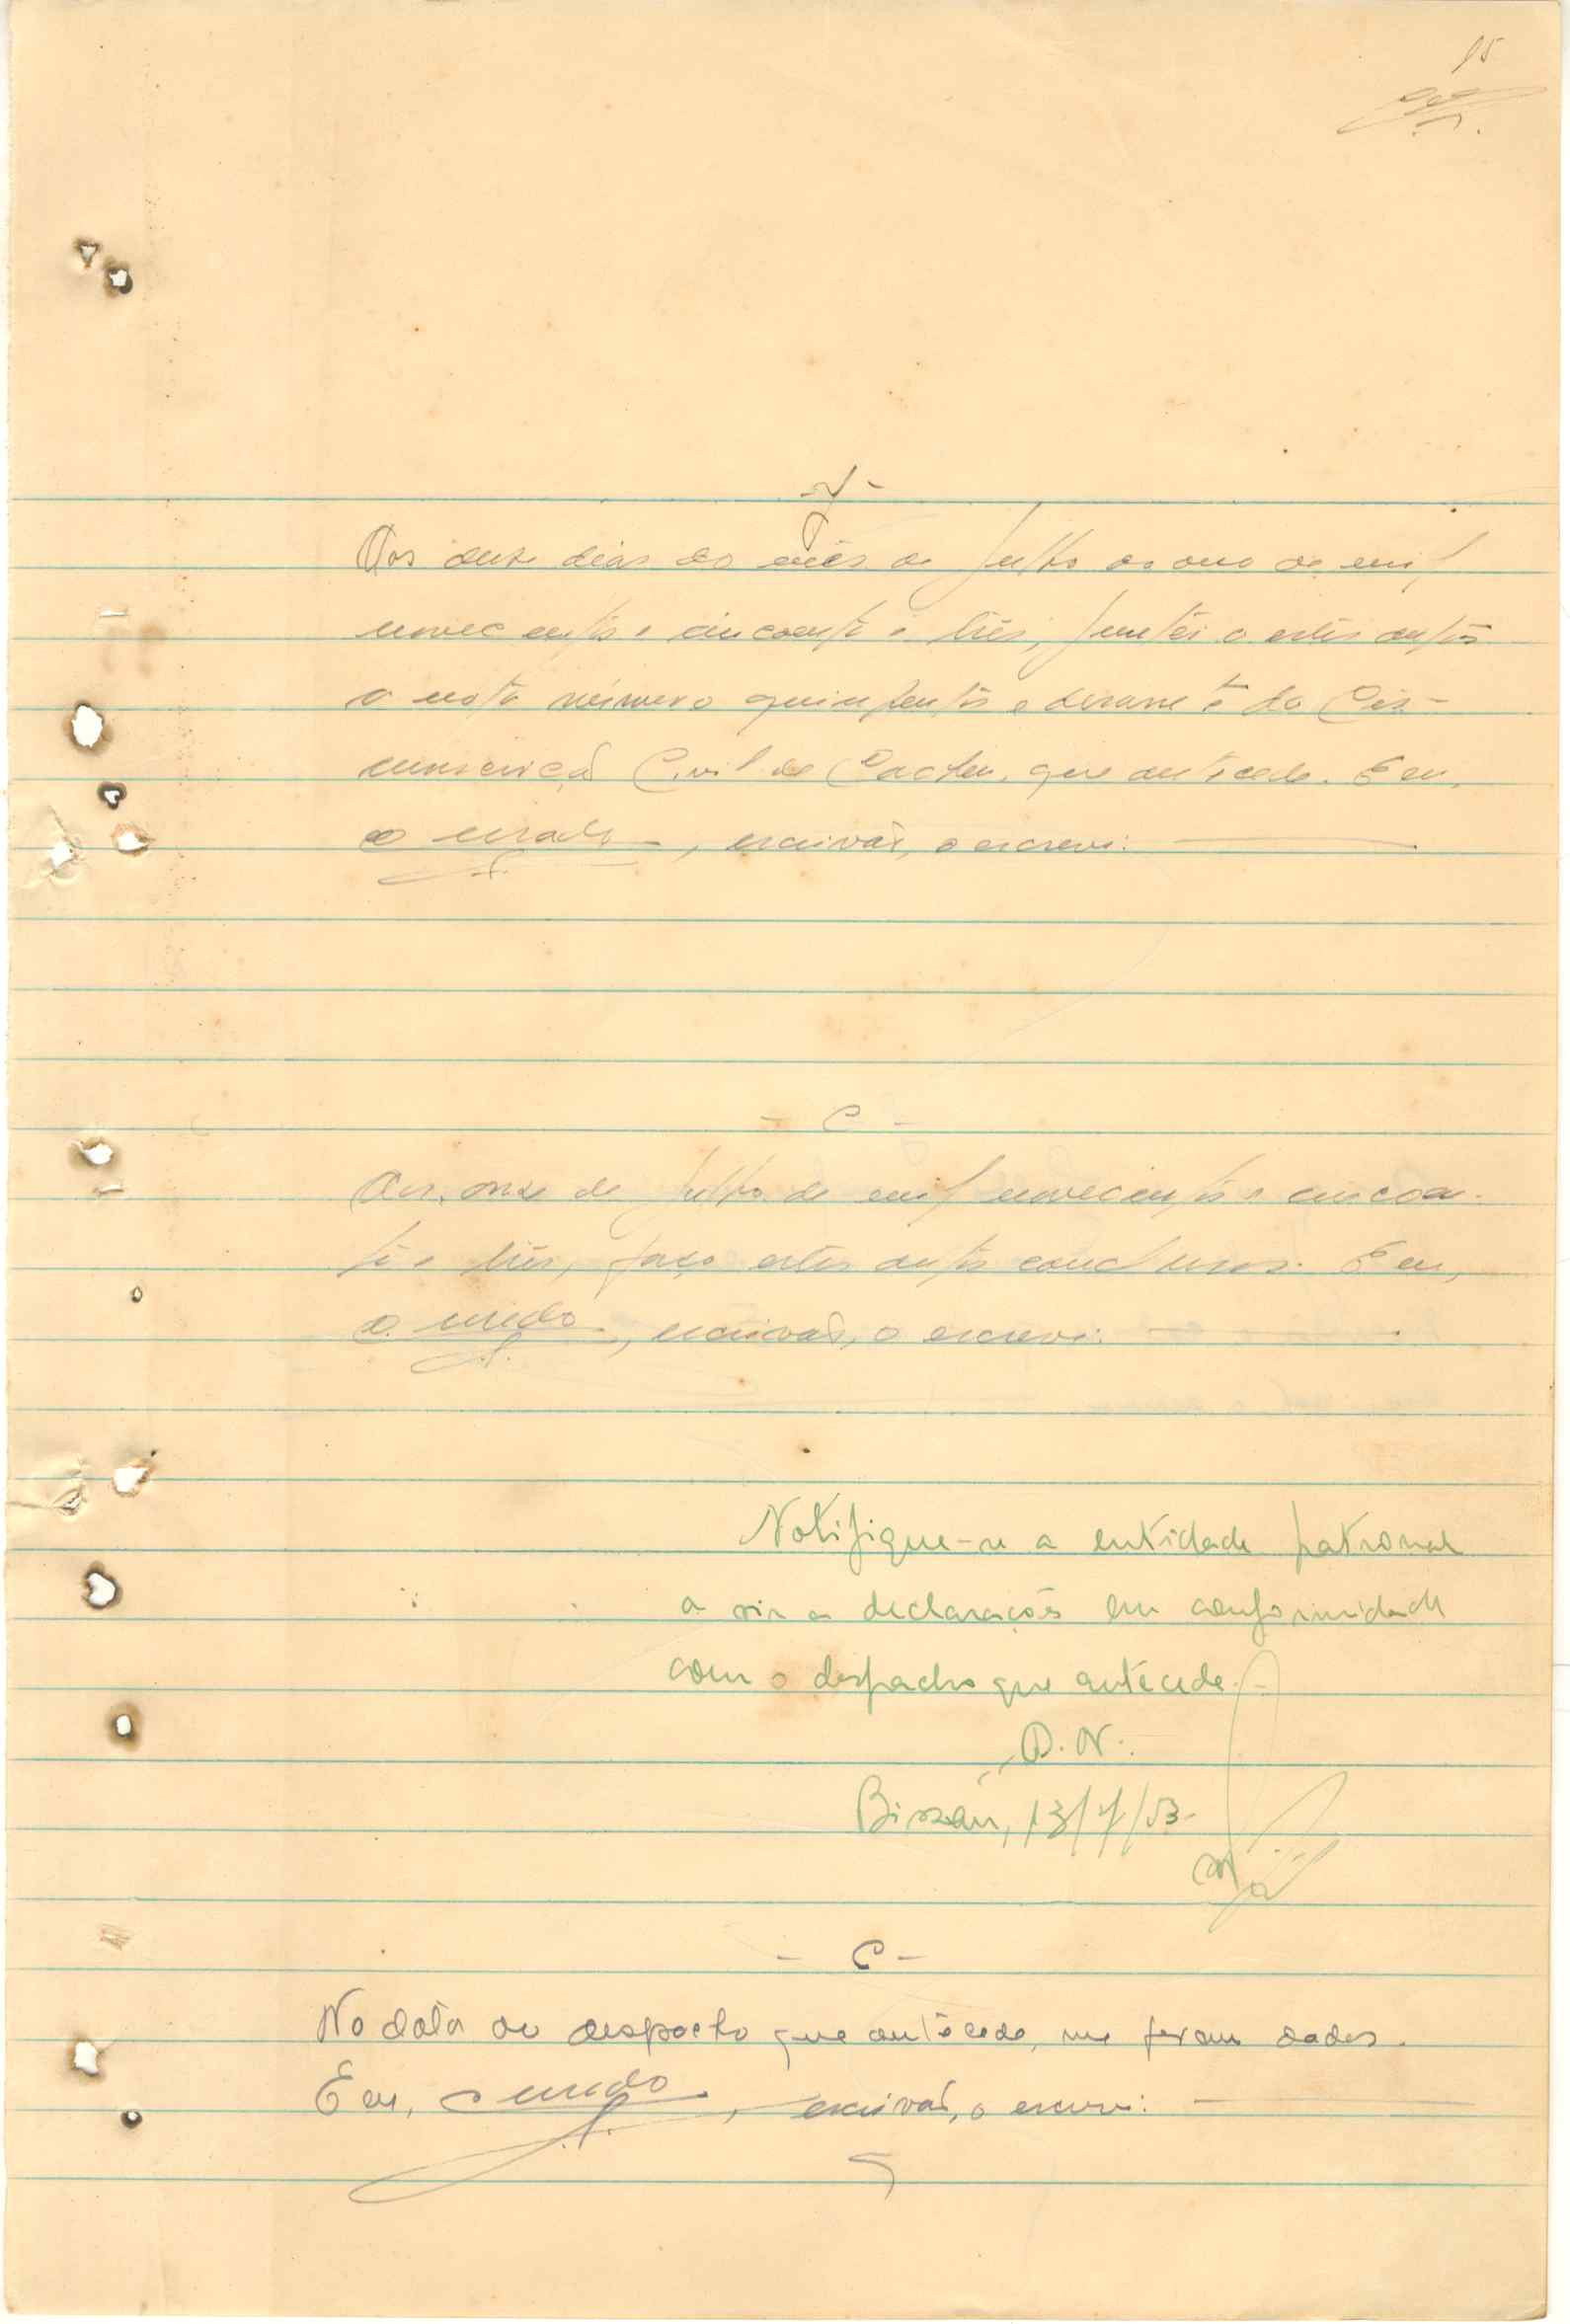 15
- J -
Aos onze dias do mês de Julho do ano de mil
novecentos e cincoenta e três, juntei a estes autos
a nota número quinhentos e do Cir-
cunscrição Civil de Cacheu, que antecede. E eu,
, escrivão, o escrevi.
- C -
Aos onze de Julho de mil novecentos e cincoen-
ta e três, faço estes autos conclusos. E eu,
, escrivão, o escrevi.
Notifique-se a entidade patronal
a vir a declarações em conformidade
com o despacho que antecede.
D. N.
Bissau, 13/7/53-
- C -
Na data do despacho que antecede, me foram dados.
E eu, , escrivão, o escrevi.